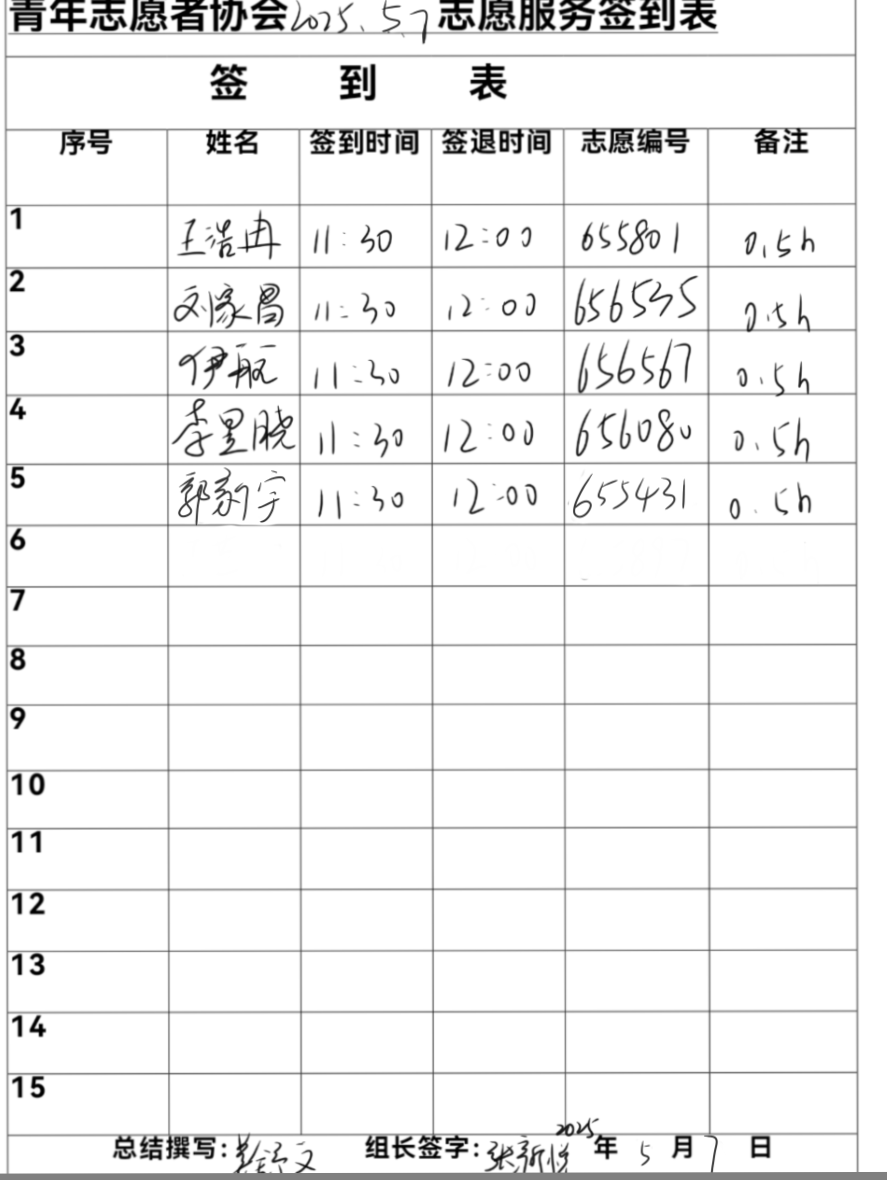 青年志愿者协会2025.5.7志愿服务签到表
签 到 表
序号 姓名 签到时间 签退时间 志愿编号 备注
1 王浩冉 11:30 12:00 655801 0.5h
2 刘家昌 11:30 12:00 656535 0.5h
3 伊航 11:30 12:00 656567 0.5h
4 李昱晓 11:30 12:00 656080 0.5h
5 郭 宇 11:30 12:00 655431 0.5h
6
7
8
9
10
11
12
13
14
15
总结撰写: 文 组长签字:张新悦 2025年5月7日